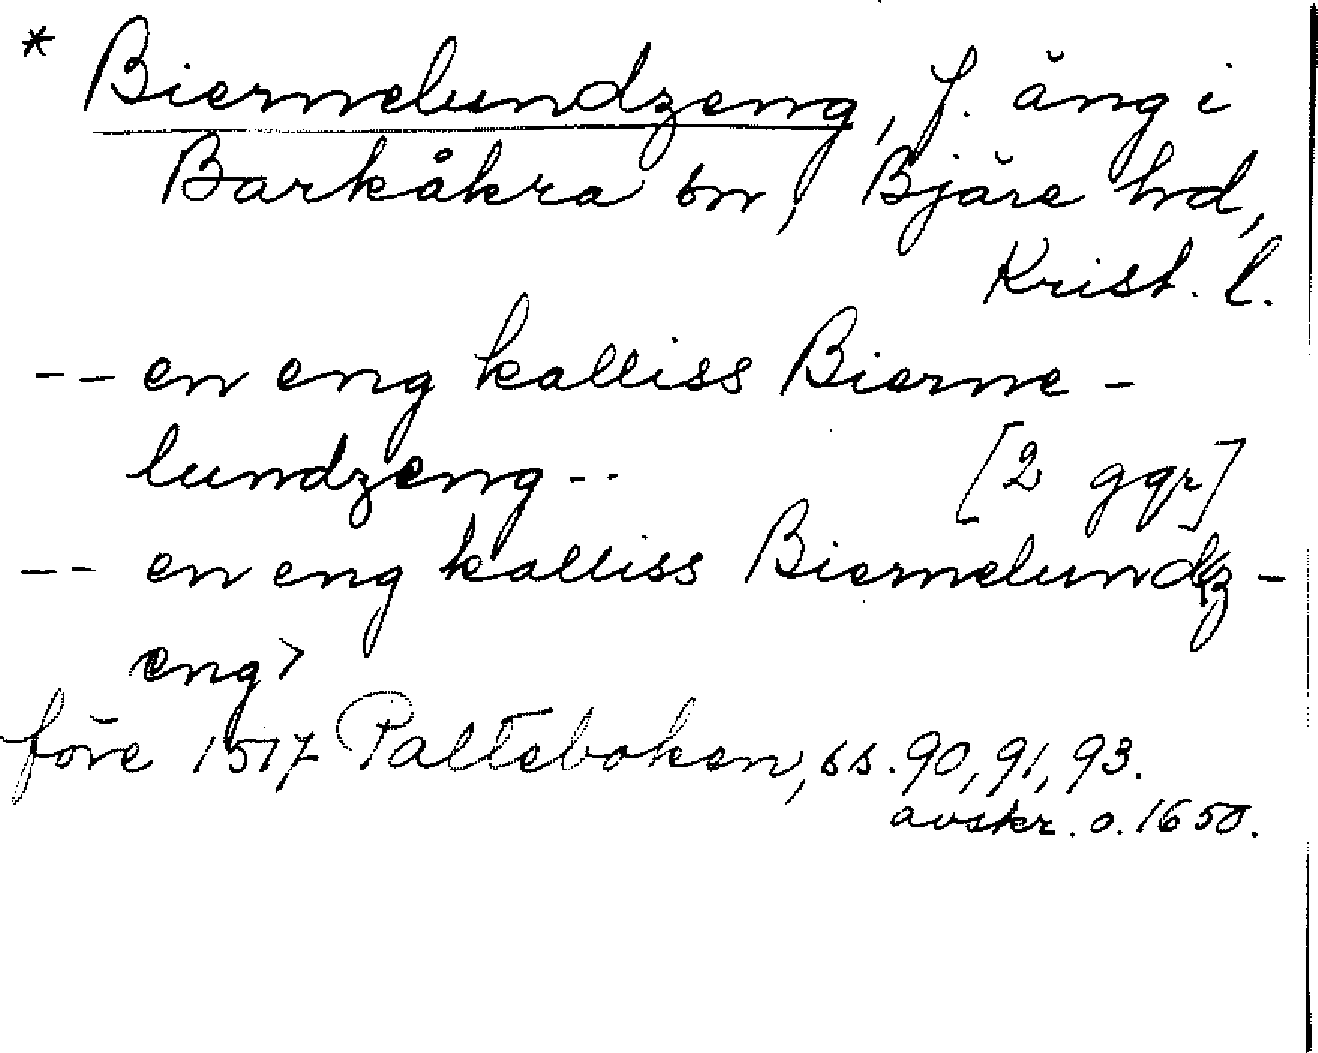 * Biernelundzeng, f. äng i
Barkåkra sn, Bjäre hd,
Krist. l.
-- en eng kalliss Bierne-
lundzeng -- [2 ggr]
-- en eng kalliss Biernelundz-
eng>
före 1517 Palteboken, ss. 90, 91, 93.
avskr. o. 1650.